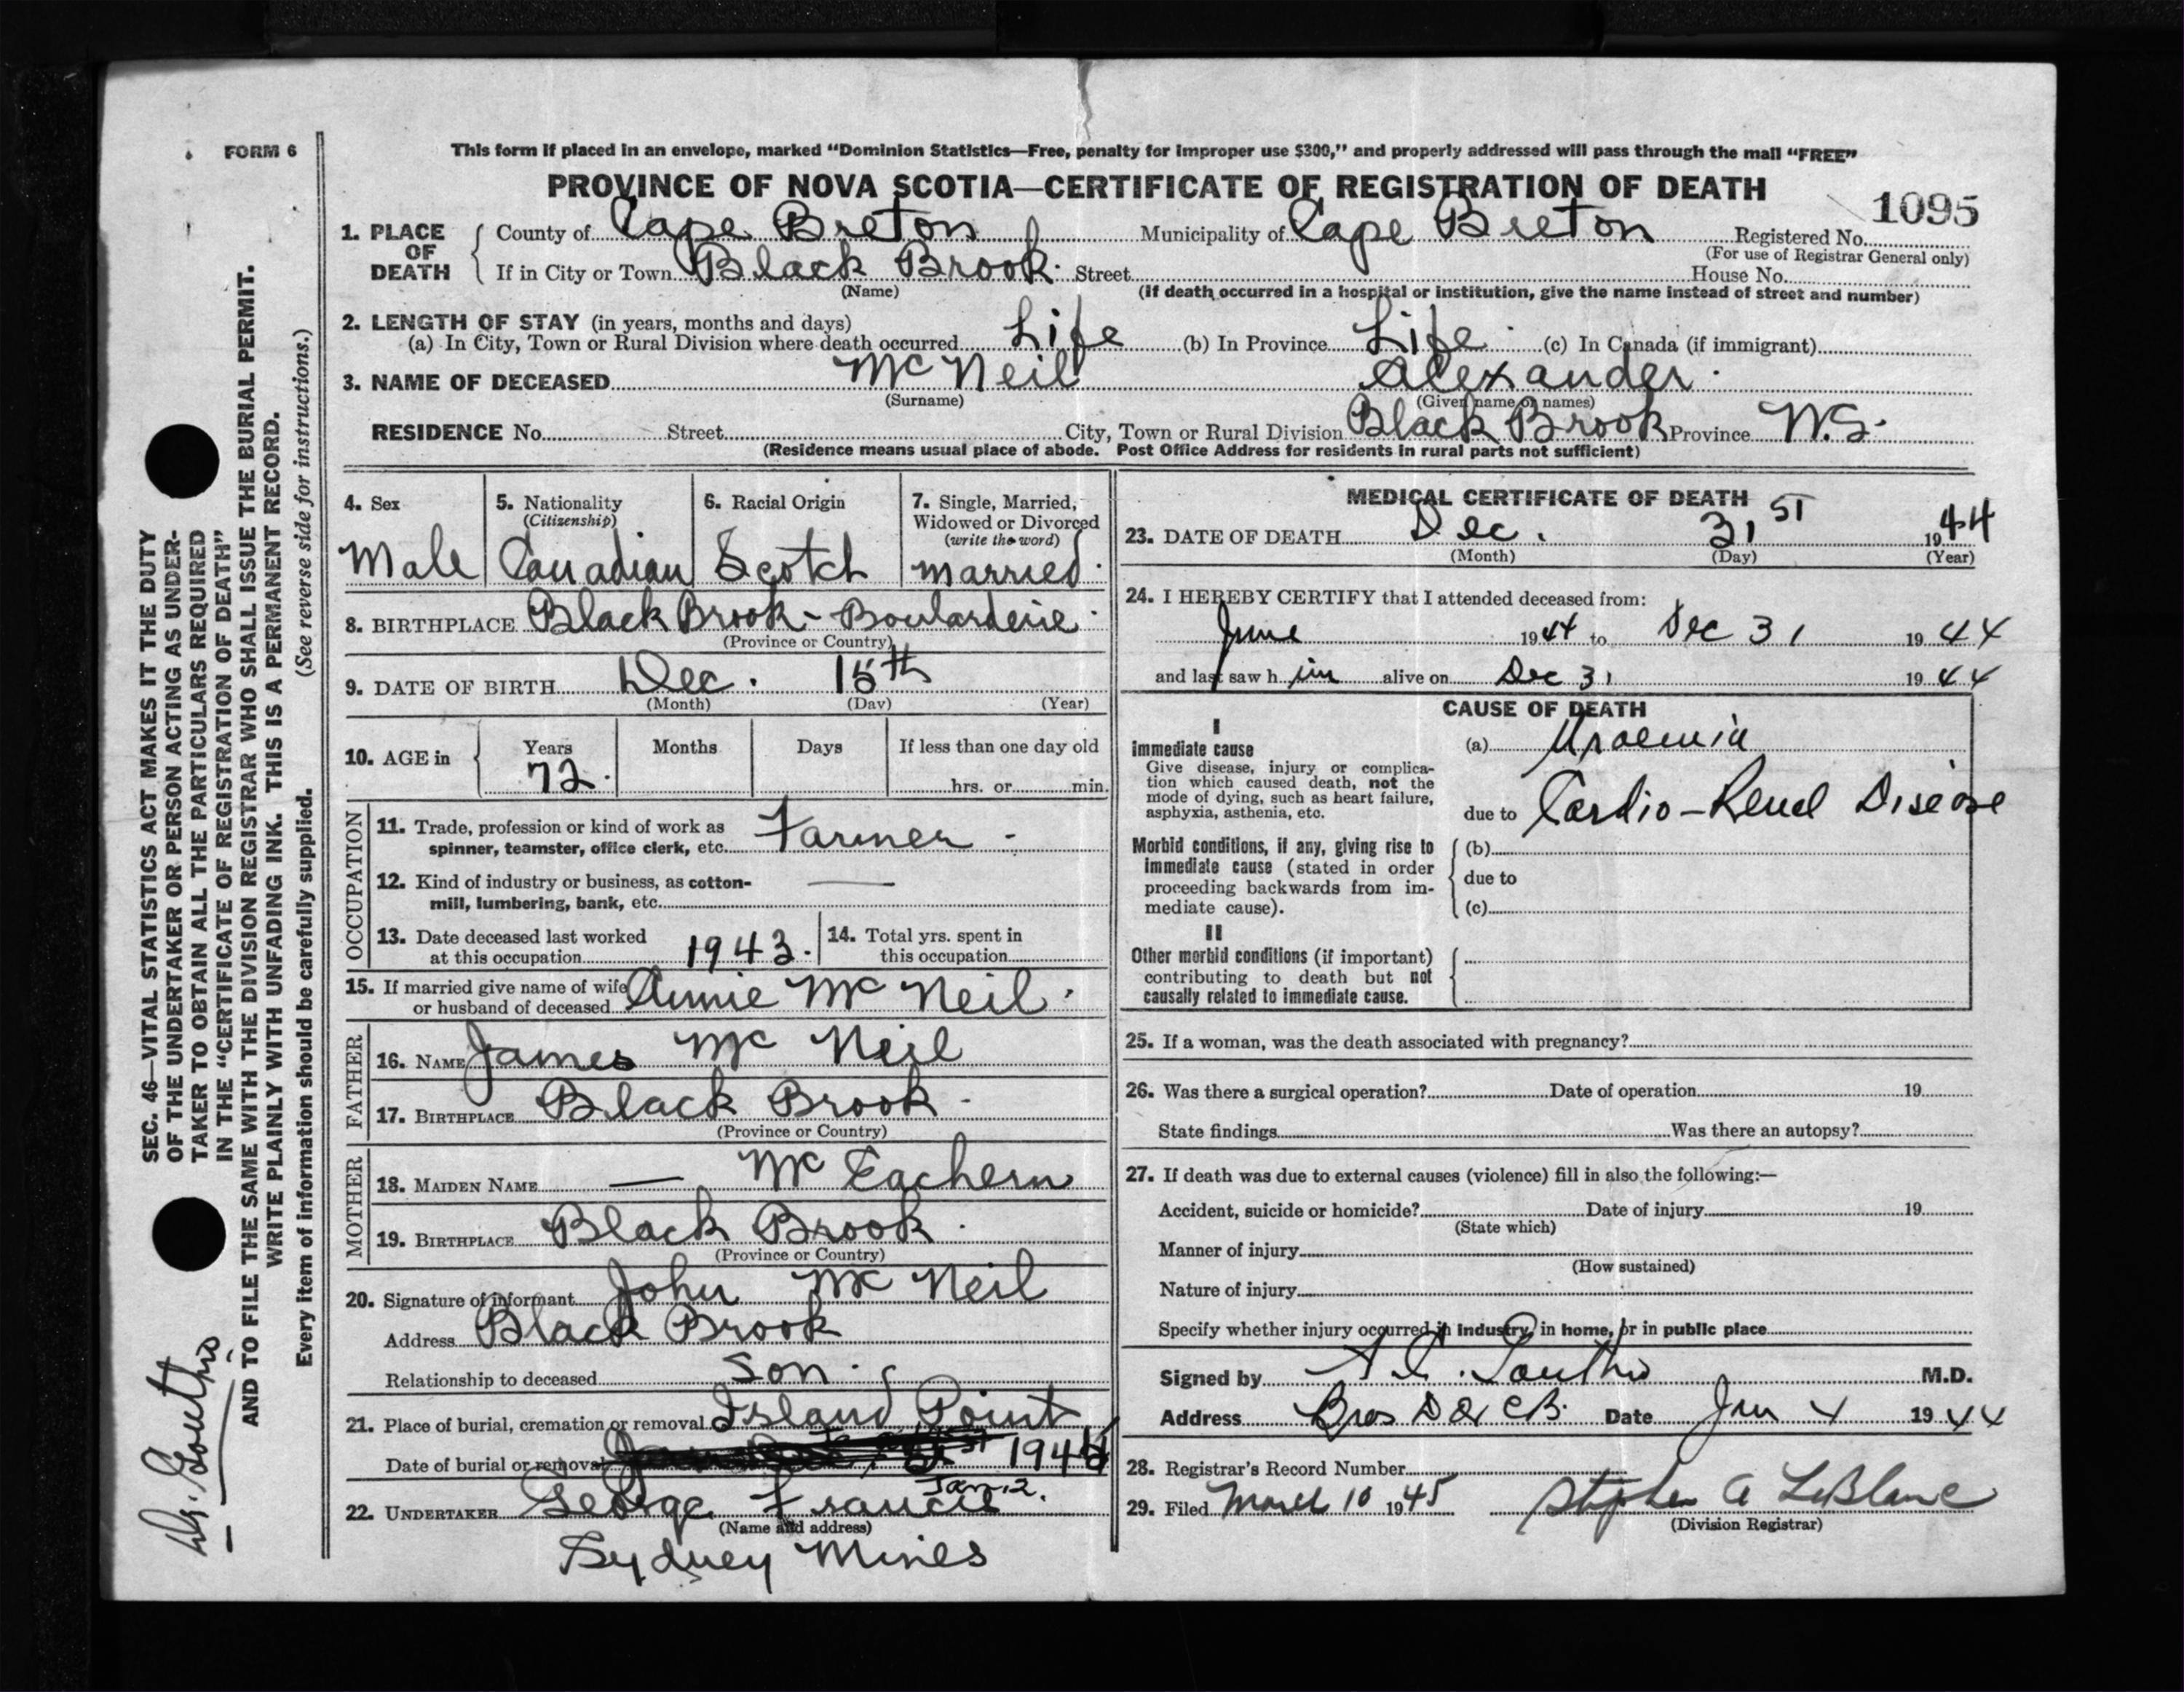 FORM 6
This form if placed in an envelope, marked "Dominion Statistics—Free, penalty for improper use $300," and properly addressed will pass through the mail "FREE"
PROVINCE OF NOVA SCOTIA—CERTIFICATE OF REGISTRATION OF DEATH
1095
1. PLACE OF DEATH County of Cape Breton Municipality of Cape Breton Registered No.
(For use of Registrar General only)
If in City or Town Black Brook Street House No.
(Name) (If death occurred in a hospital or institution, give the name instead of street and number)
2. LENGTH OF STAY (in years, months and days)
(a) In City, Town or Rural Division where death occurred Life (b) In Province Life (c) In Canada (if immigrant)
3. NAME OF DECEASED McNeil Alexander
(Surname) (Given name or names)
RESIDENCE No. Street City, Town or Rural Division Black Brook Province N.S.
(Residence means usual place of abode. Post Office Address for residents in rural parts not sufficient)
4. Sex
Male
5. Nationality
(Citizenship)
Canadian
6. Racial Origin
Scotch
7. Single, Married,
Widowed or Divorced
(write the word)
married
8. BIRTHPLACE Black Brook - Boularderie
(Province or Country)
9. DATE OF BIRTH Dec. 15th
(Month) (Day) (Year)
10. AGE in Years Months Days If less than one day old
72 hrs. or min.
OCCUPATION
11. Trade, profession or kind of work as
spinner, teamster, office clerk, etc. Farmer -
12. Kind of industry or business, as cotton-
mill, lumbering, bank, etc. —
13. Date deceased last worked
at this occupation 1943.
14. Total yrs. spent in
this occupation
15. If married give name of wife
or husband of deceased Annie McNeil
FATHER
16. NAME James McNeil
17. BIRTHPLACE Black Brook -
(Province or Country)
MOTHER
18. MAIDEN NAME — McEachern
19. BIRTHPLACE Black Brook
(Province or Country)
20. Signature of informant John McNeil
Address Black Brook
Relationship to deceased Son
21. Place of burial, cremation or removal Island Point
Date of burial or removal 194
Jan. 2.
22. UNDERTAKER George Francis
(Name and address)
Sydney Mines
MEDICAL CERTIFICATE OF DEATH
23. DATE OF DEATH Dec. 31st 1944
(Month) (Day) (Year)
24. I HEREBY CERTIFY that I attended deceased from:
June 1944 to Dec 31 1944
and last saw him alive on Dec 31 1944
CAUSE OF DEATH
I
Immediate cause
Give disease, injury or complica-
tion which caused death, not the
mode of dying, such as heart failure,
asphyxia, asthenia, etc.
(a) Uraemia
due to Cardio-Renal Disease
Morbid conditions, if any, giving rise to
immediate cause (stated in order
proceeding backwards from im-
mediate cause).
(b)
due to
(c)
II
Other morbid conditions (if important)
contributing to death but not
causally related to immediate cause.
25. If a woman, was the death associated with pregnancy?
26. Was there a surgical operation? Date of operation 19
State findings Was there an autopsy?
27. If death was due to external causes (violence) fill in also the following:—
Accident, suicide or homicide? Date of injury 19
(State which)
Manner of injury
(How sustained)
Nature of injury
Specify whether injury occurred in industry, in home, or in public place
Signed by M.D.
Address Bras D Or CB. Date Jan 4 1944
28. Registrar's Record Number
29. Filed March 10 1945 Stephen A LeBlanc
(Division Registrar)
SEC. 46—VITAL STATISTICS ACT MAKES IT THE DUTY
OF THE UNDERTAKER OR PERSON ACTING AS UNDER-
TAKER TO OBTAIN ALL THE PARTICULARS REQUIRED
IN THE "CERTIFICATE OF REGISTRATION OF DEATH"
AND TO FILE THE SAME WITH THE DIVISION REGISTRAR WHO SHALL ISSUE THE BURIAL PERMIT.
WRITE PLAINLY WITH UNFADING INK. THIS IS A PERMANENT RECORD.
Every item of information should be carefully supplied. (See reverse side for instructions.)
Dr.